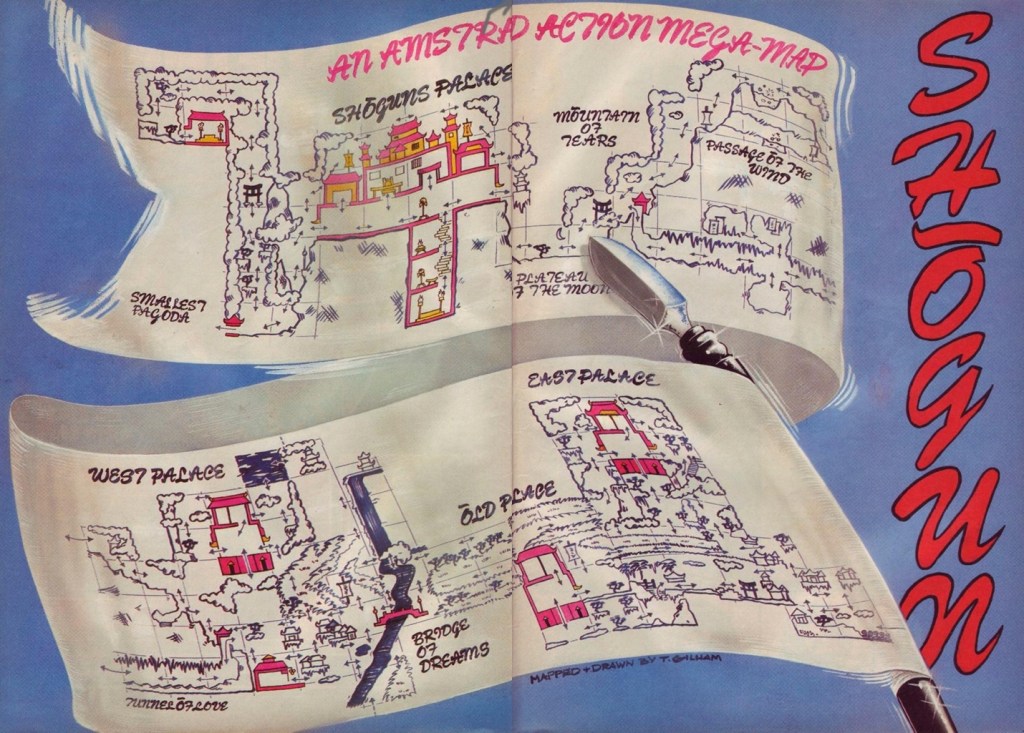 AN AMSTRAD ACTION MEGA-MAP
SHŌGUNS PALACE
MŌUNTAIN
ŌF
TEARS
PASSAGE ŌF THE
WIND
SMALLEST
PAGŌDA
PLATEAU
F THE MŌŌN
SHŌGUN
EAST PALACE
WEST PALACE
ŌLD PLACE
BRIDGE
ŌF
DREAMS
TUNNEL ŌF LŌVE
MAPPED + DRAWN BY T. GALHAM